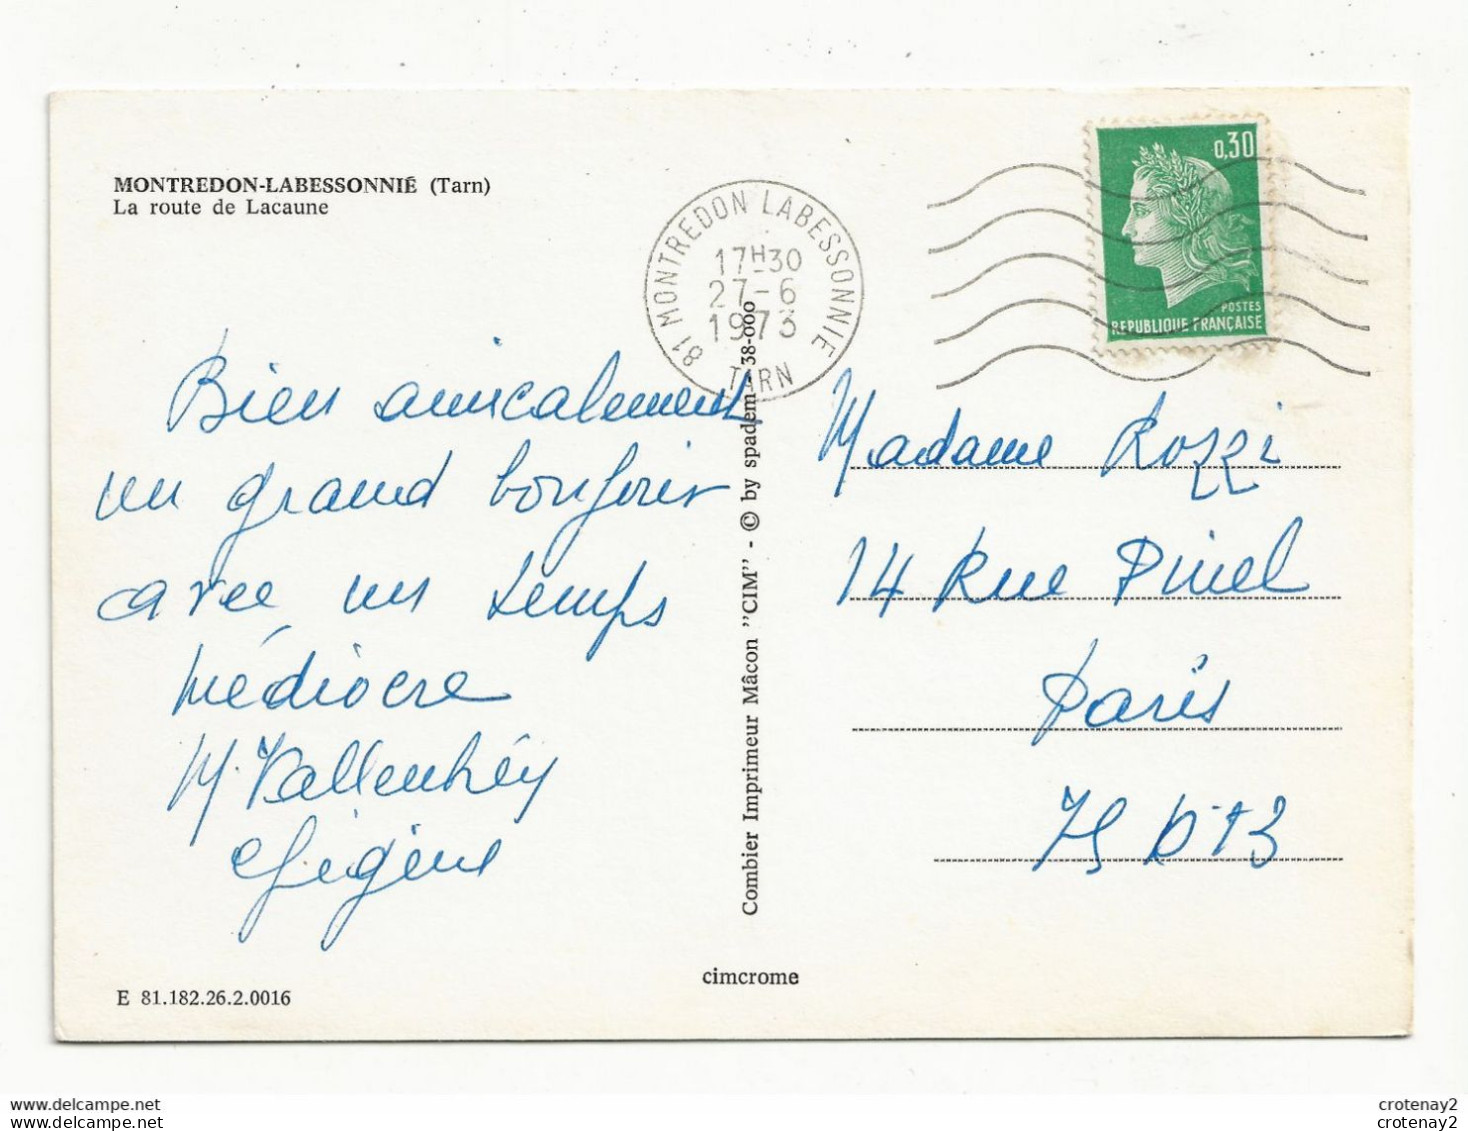 MONTREDON-LABESSONNIÉ (Tarn)
La route de Lacaune
81 MONTREDON LABESSONNIE
17H30
27-6
1973
TARN
0,30
POSTES
REPUBLIQUE FRANÇAISE
Bien amicalement
un grand bonjour
avec un temps
médiocre
Madame Rozzi
14 Rue Pinel
Paris
75013
Combier Imprimeur Mâcon "CIM" - © by spadem 38-000
cimcrome
E 81.182.26.2.0016
crotenay2
crotenay2
www.delcampe.net
www.delcampe.net